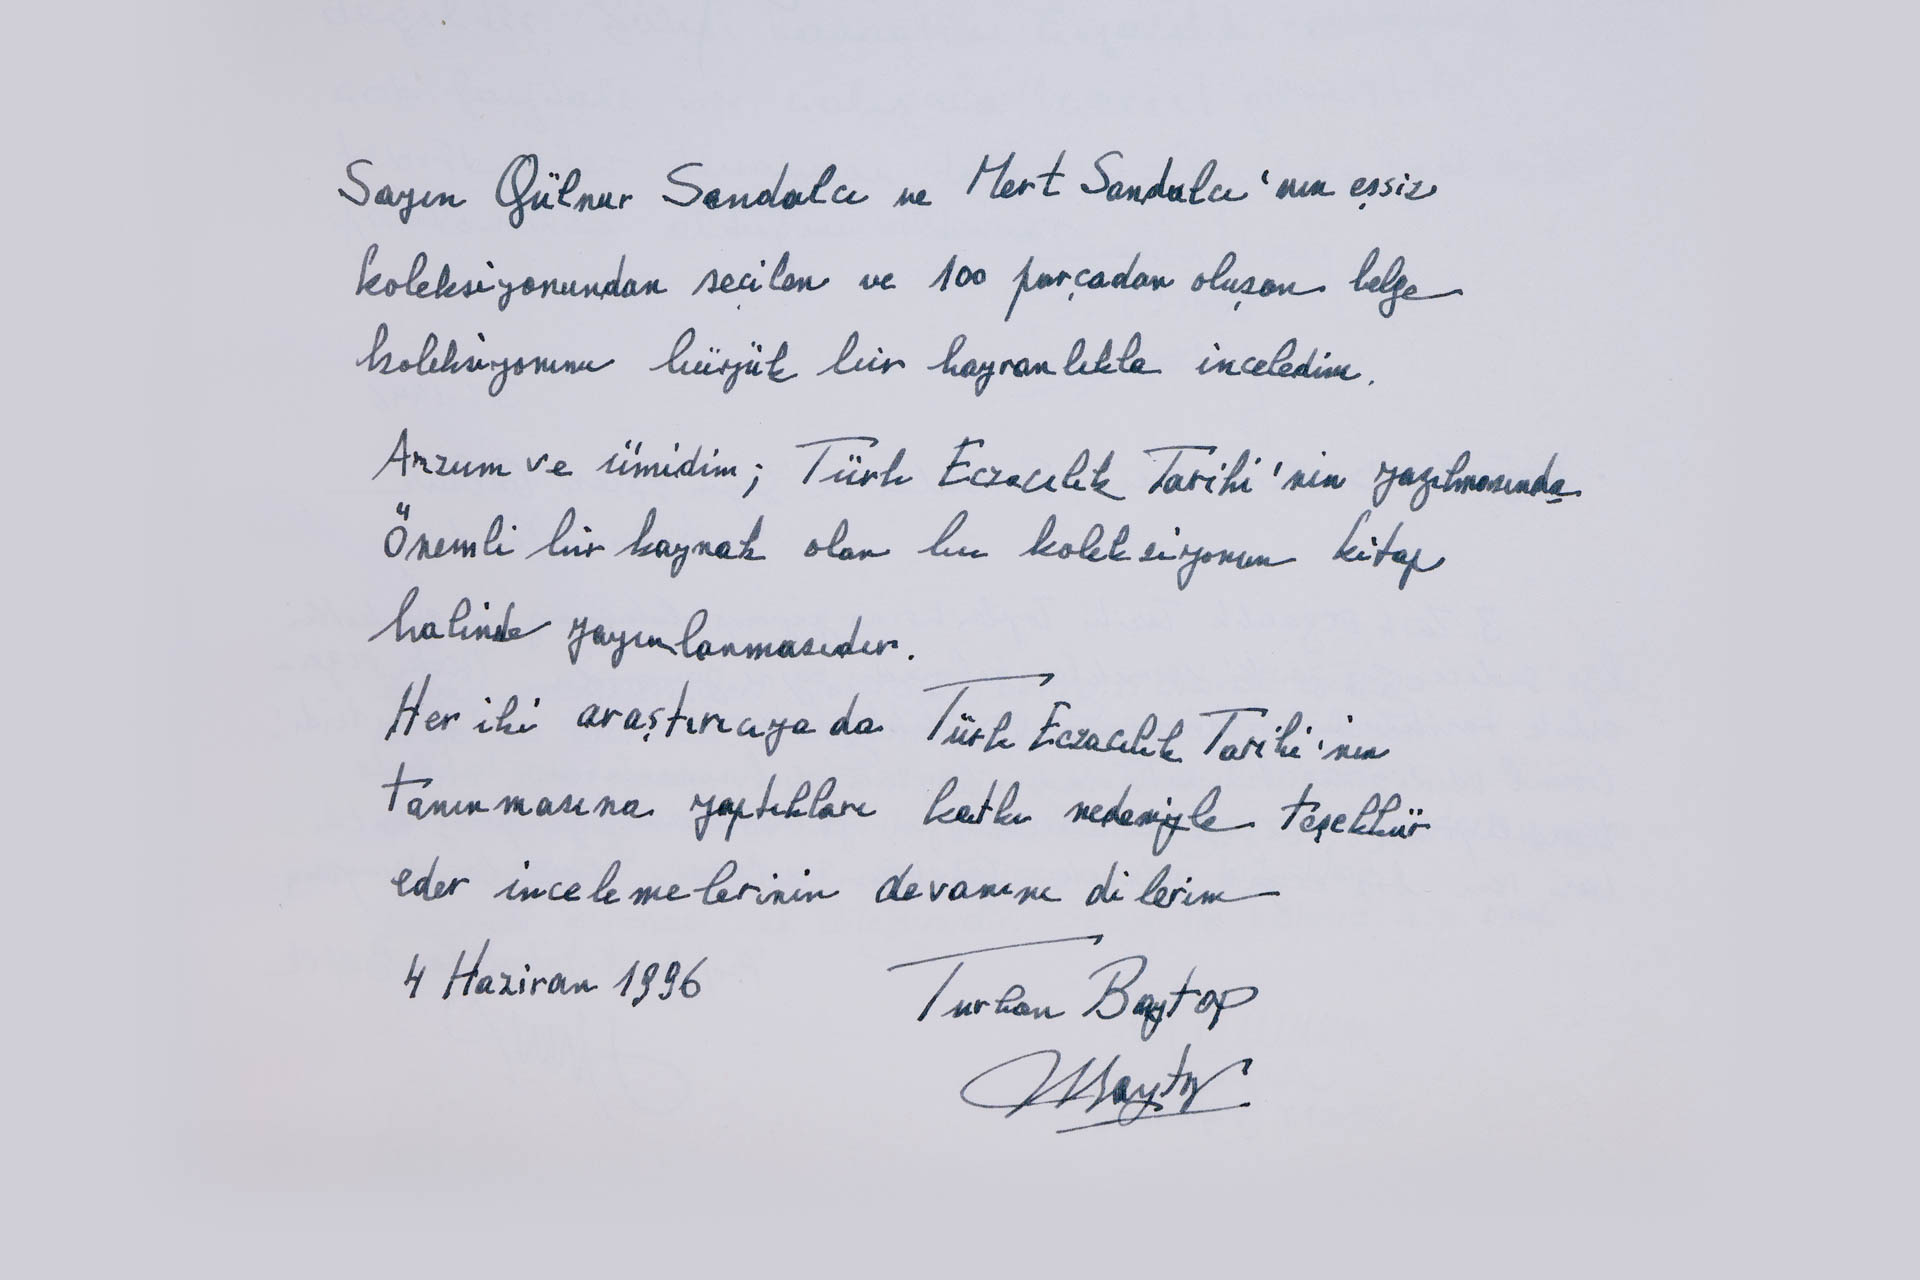 Sayın Gülnur Sandalcı ve Mert Sandalcı'nın eşsiz
koleksiyonundan seçilen ve 100 parçadan oluşan belge
koleksiyonunu büyük bir hayranlıkla inceledim.
Arzum ve ümidim; Türk Eczacılık Tarihi'nin yazılmasında
Önemli bir kaynak olan bu koleksiyonun kitap
halinde yayınlanmasıdır.
Her iki araştırıcıya da Türk Eczacılık Tarihi'nin
tanınmasına yaptıkları katkı nedeniyle teşekkür
eder incelemelerinin devamını dilerim
4 Haziran 1996 Turhan Baytop
Baytop